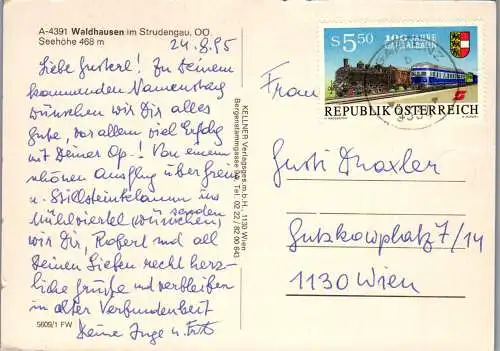 A-4391 Waldhausen im Strudengau, OÖ.
Seehöhe 468 m
24.8.95
Liebe Gusterl! Zu Deinem
kommenden Namenstag
wünschen wir Dir alles
gute, vor allem viel Erfolg
mit Deiner Op.! Von einem
schönen Ausflug über Grein
u. Stillsteinklamm ins
Mühlviertel (wünschen) senden
wir Dir, Robert und all
Deinen Lieben recht herz-
liche Grüße und verbleiben
in alter Verbundenheit
Deine Inge u. Fritz
5609/1 FW
KELLNER Verlagsges.m.b.H., 1130 Wien
Bergenstammgasse Tel. 02 22 / 82 90 643
S 5,50
100 JAHRE
REPUBLIK ÖSTERREICH
Frau
Gusti Draxler
Gutzkowplatz 7/14
1130 Wien